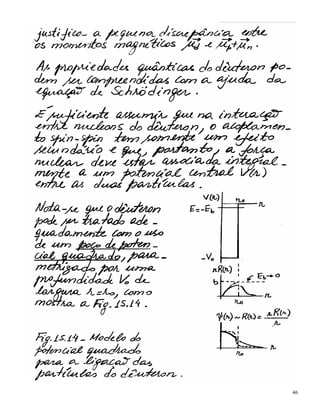 justifica a pequena discrepância entre
os momentos magnéticos μd e μp+μn.
As propriedades quânticas do dêuteron po-
dem ser compreendidas com a ajuda da
equação de Schrödinger.
É suficiente assumir que na interação
entre nucleons do dêuteron, o acoplamen-
to spin-spin tem somente um efeito
secundário e que, portanto, a força
nuclear deve estar associada integral-
mente a um potencial central V(r)
entre as duas partículas.
Nota-se que o dêuteron
pode ser tratado ade-
quadamente com o uso
de um poço de poten-
cial quadrado, para-
metrizado por uma
profundidade V₀ de
largura r=r₀, como
mostra a Fig. 15.14.
Fig. 15.14 - Modelo do
potencial quadrado
para a ligação das
partículas do dêuteron.
V(r)
r₀
r
E=-Eb
-V₀
rR(r)
b
Eb→0
r
r₀
ψ(r)~R(r)= rR(r)/r
r
r₀
46